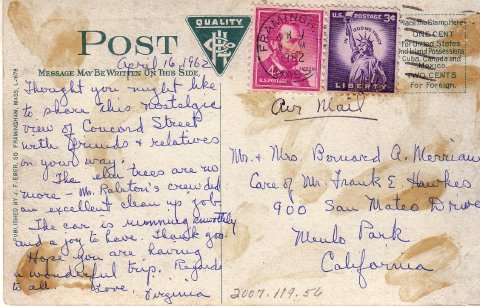 POST
QUALITY
April 16, 1962
MESSAGE MAY BE WRITTEN ON THIS SIDE
Thought you might like
to share this nostalgic
view of Concord Street
with friends & relatives
on your way.
The elm trees are no
more – Mr. Ralston's crew did
an excellent clean up job.
The car is running smoothly
and a joy to have. Thank you.
Hope you are having
a wonderful trip. Regards
to all. Love, Virginia
PUBLISHED BY
FRAMINGHAM, MASS.
FRAMINGHAM
1962
MASS
U.S. POSTAGE
U.S. POSTAGE 3¢
IN GOD WE TRUST
LIBERTY
Place the Stamp Here
ONE CENT
for United States
and Island Possessions
Cuba, Canada and
Mexico.
TWO CENTS
for Foreign.
Air Mail
Mr. & Mrs. Bernard A. Merriam
Care of Mr. Frank E. Hawkes
900 San Mateo Drive
Menlo Park
California
2007.119.56